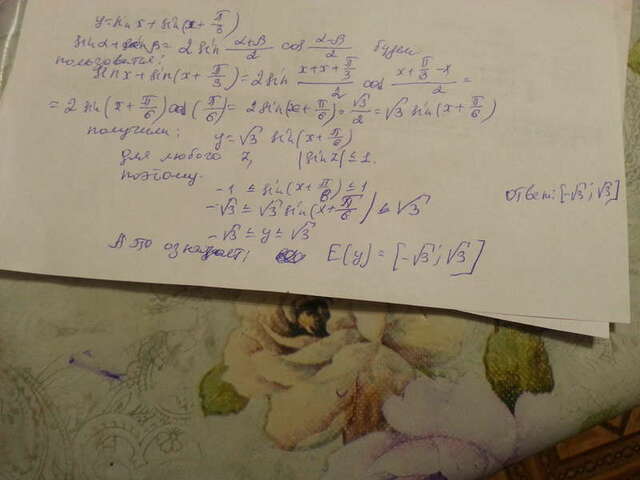 y = sin x + sin(x + π/3)
sin α + sin β = 2 sin (α+β)/2 cos (α-β)/2 будем
пользоваться:
sin x + sin(x + π/3) = 2 sin (x+x+π/3)/2 cos (x+π/3-x)/2 =
= 2 sin(x + π/6) cos(π/6) = 2 sin(x + π/6) · √3/2 = √3 sin(x + π/6)
получили: y = √3 sin(x + π/6)
для любого z, |sin z| ≤ 1.
поэтому
-1 ≤ sin(x + π/6) ≤ 1
-√3 ≤ √3 sin(x + π/6) ≤ √3
-√3 ≤ y ≤ √3
А это означает, E(y) = [-√3; √3]
Ответ: [-√3; √3]